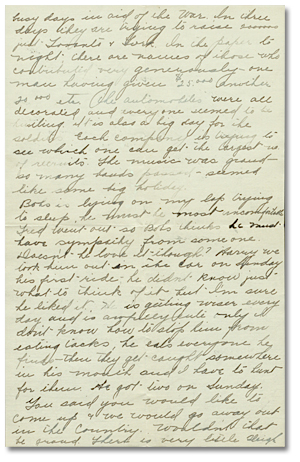 busy days in aid of the War. In three
days they are trying to raise 500000
just Toronto & York. In the paper to
night, there are names of those who
contributed very generously - one
man having given $25,000 another
20,000 etc. The automobiles were all
decorated and every one seemed to be
It is also a big day for the
soldiers. Each company is trying to
see which one can get the largest no
of recruits. The music was grand
so many bands passed - seemed
like some big holiday.
Bobs is lying on my lap trying
to sleep, he must be most uncomfortable
Fred went out so Bobs thinks he must
have sympathy from some one
Doesn't he love it though? Harry we
took him out in the car on Sunday
his first ride - he didn't know just
what to think of it but I'm sure
he liked it. He is getting wiser every
day and is awfully cute - only I
don't know how to stop him from
eating tacks, he eats everyone he
finds - then they get caught somewhere
in his mouth and I have to hunt
for them. He got two on Sunday.
You said you would like to
come up & we would go away out
in the Country. Wouldn't that
be grand There is very little sleigh